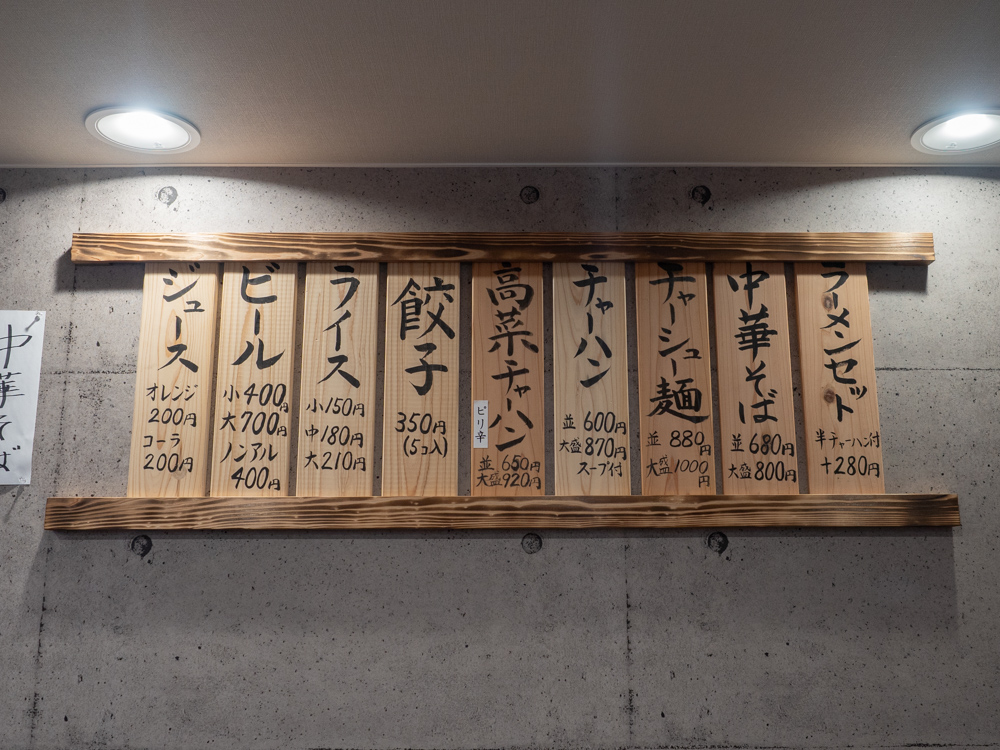 ラーメンセット
半チャーハン付
+280円
中華そば
並 680円
大盛 800円
チャーシュー麺
並 880円
大盛 1000
円
チャーハン
並 600円
大盛 870円
スープ付
高菜チャーハン
ピリ辛
並 650円
大盛 920円
餃子
350円
(5コ入)
ライス
小150円
中180円
大210円
ビール
小400円
大700円
ノンアル
400円
ジュース
オレンジ
200円
コーラ
200円
中華そば